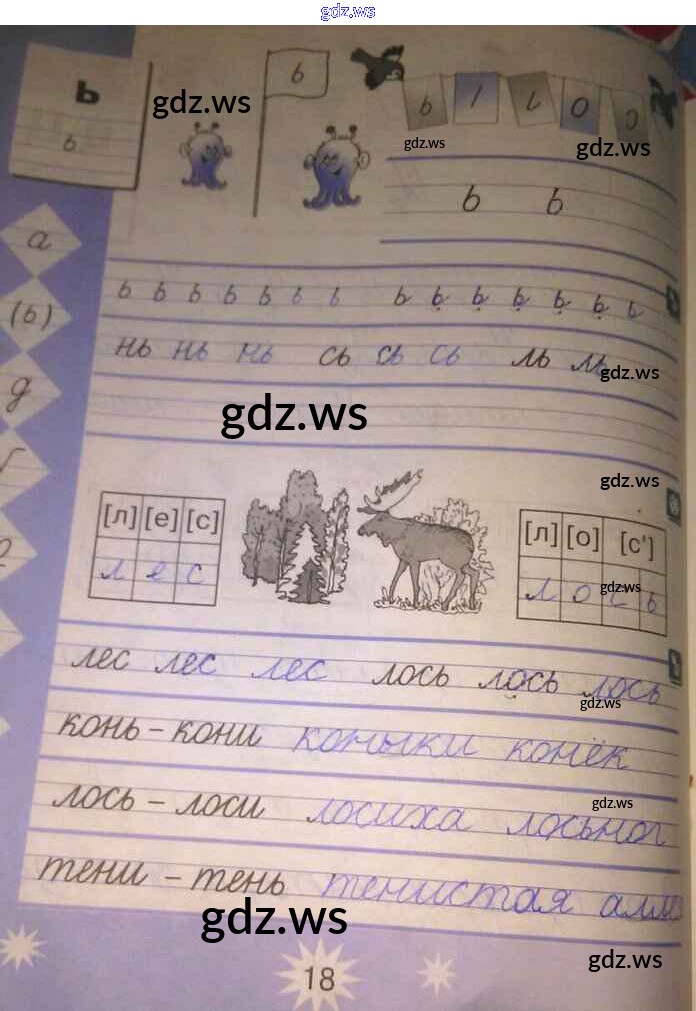 gdz.ws
ь
ь
ь
gdz.ws
gdz.ws
gdz.ws
ь ь
а
(ь)
д
ь ь ь ь ь ь ь ь ь ь ь ь ь ь
нь нь нь сь сь сь ль ль
gdz.ws
gdz.ws
gdz.ws
[л] [е] [с] [л] [о] [с']
л е с л о с ь
gdz.ws
лес лес лес лось лось лось
gdz.ws
конь – кони коньки конёк
gdz.ws
лось – лоси лосиха
тени – тень тенистая
gdz.ws
gdz.ws
18